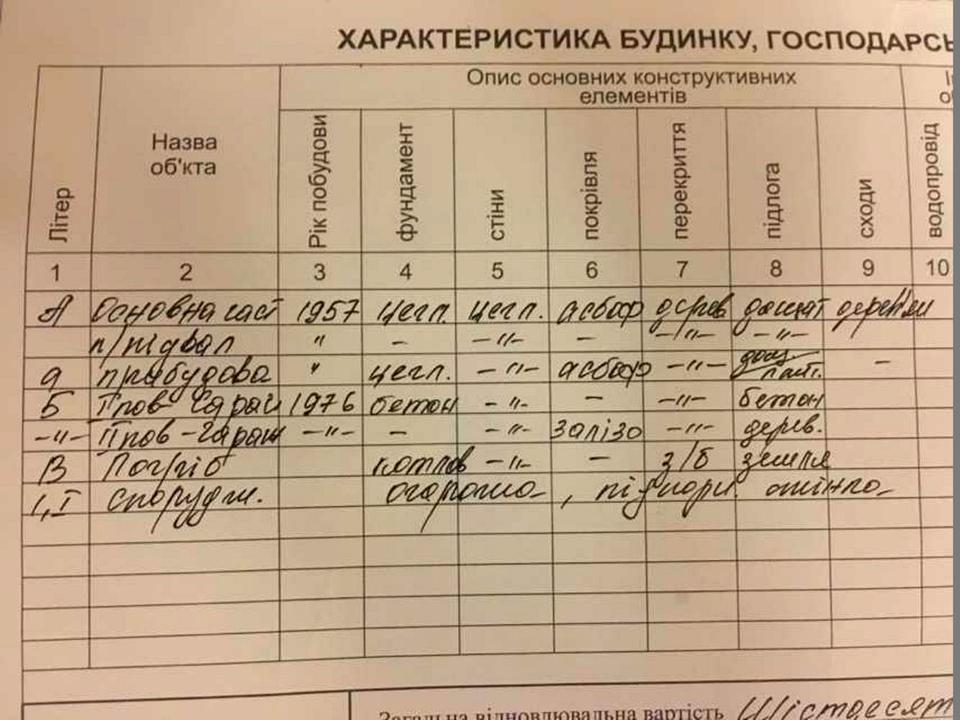 ХАРАКТЕРИСТИКА БУДИНКУ, ГОСПОДАРСЬ
Літер
Назва
об'кта
Опис основних конструктивних
елементів
Рік побудови
фундамент
стіни
покрівля
перекриття
підлога
сходи
водопровід
1 2 3 4 5 6 7 8 9 10
А Основна част 1957 цегл. цегл. асбоф дерев дощат
п/підвал " - -"- - -"- -"-
а прибудова " цегл. -"- асбоф -"- -
Б І пов Сарай 1976 бетон -"- - -"- бетон
-"- ІІ пов - Гараж -"- - -"- залізо -"- дерев.
В Погріб котлов -"- - з/б земля
1, І споруди. огорожа, підпорн.
Загальна відновлювальна вартість Шістдесят